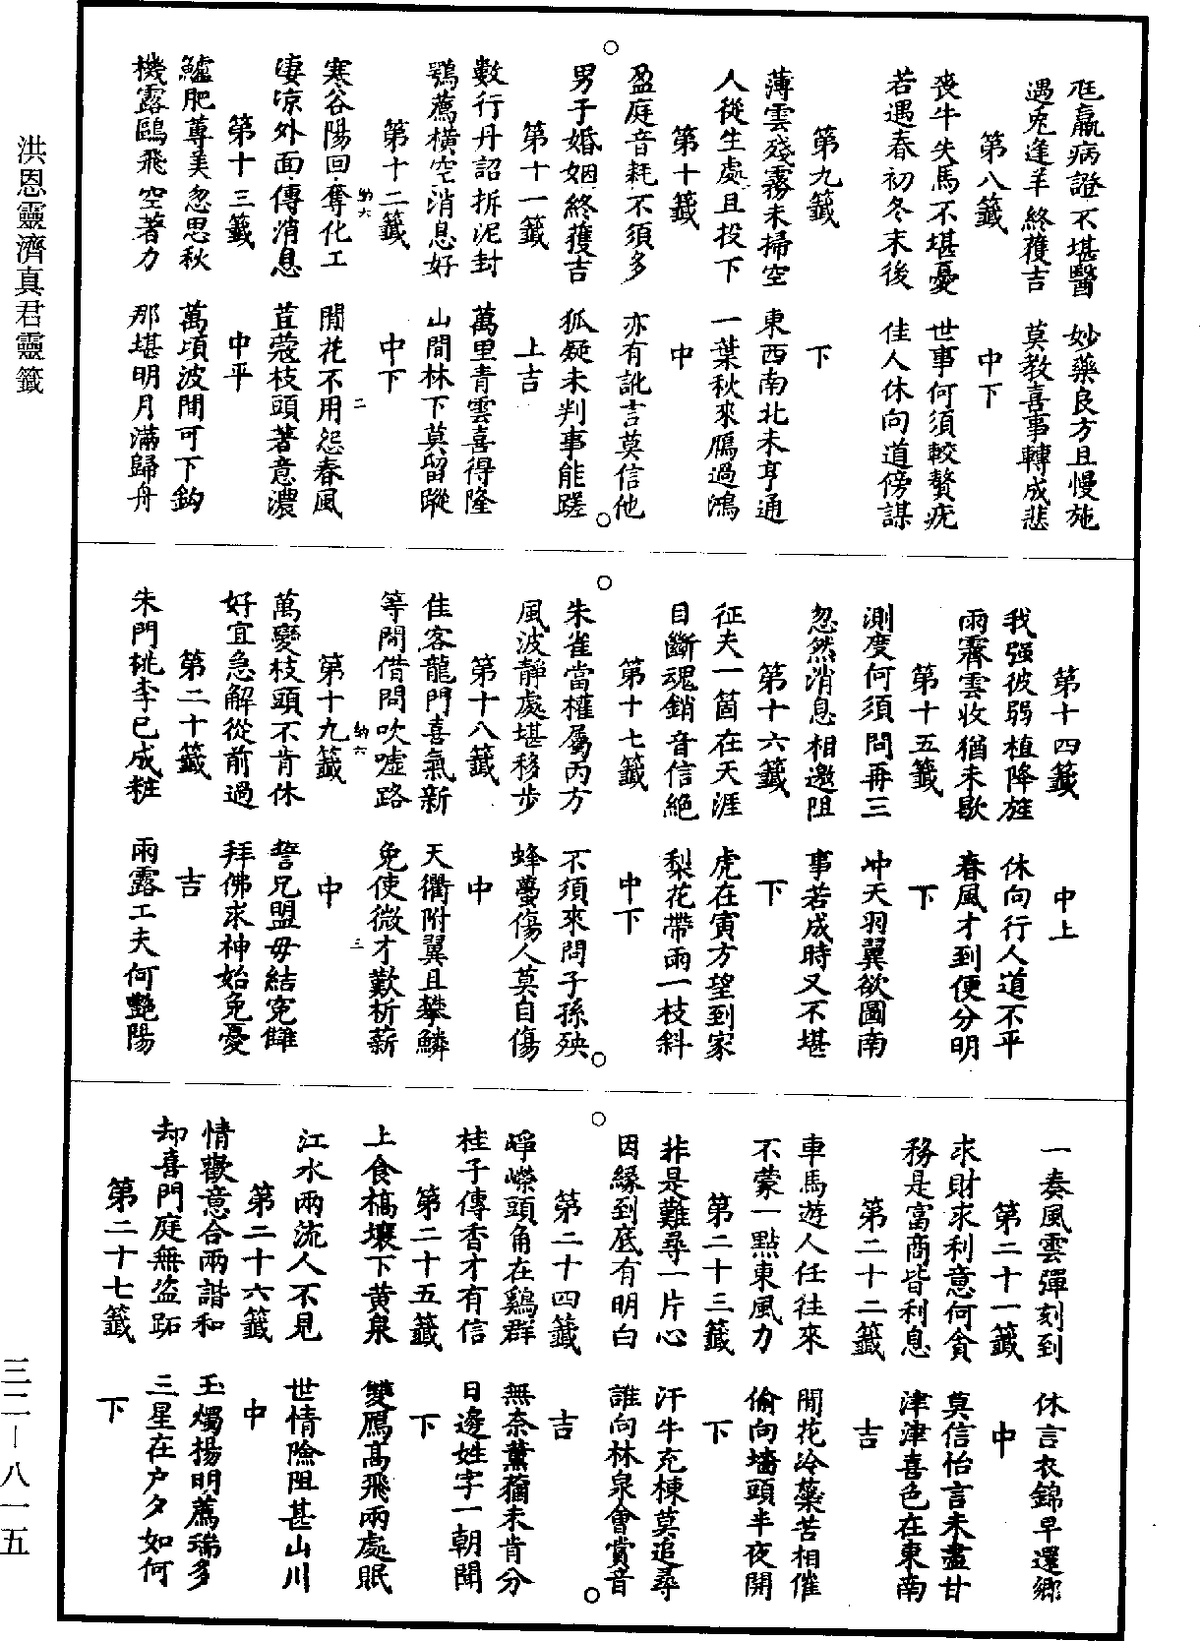 洪恩靈濟真君靈籤
尫羸病證不堪醫 妙藥良方且慢施
遇兎逢羊終獲吉 莫教喜事轉成悲
第八籤 中下
喪牛失馬不堪憂 世事何須較贅疣
若遇春初冬末後 佳人休向道傍謀
第九籤 下
薄雲殘霧未掃空 東西南北未亨通
人從生處且投下 一葉秋來鴈過鴻
第十籤 中
盈庭音耗不須多 亦有訛言莫信他
男子婚姻終獲吉 狐疑未判事能蹉
第十一籤 上吉
數行丹詔拆泥封 萬里青雲喜得隆
鶚薦橫空消息好 山間林下莫留蹤
第十二籤 中下
寒谷陽回奪化工 閒花不用怨春風
淒涼外面傳消息 荳蔻枝頭著意濃
第十三籤 中平
鱸肥蓴美忽思秋 萬頃波間可下鈎
機露鷗飛空著力 那堪明月滿歸舟
納六 二
第十四籤 中上
我强彼弱植降旌 休向行人道不平
雨霽雲收猶未歇 春風才到便分明
第十五籤 下
測度何須問再三 冲天羽翼欲圖南
忽然消息相邀阻 事若成時又不堪
第十六籤 下
征夫一箇在天涯 虎在寅方望到家
目斷魂銷音信絕 梨花帶雨一枝斜
第十七籤 中下
朱雀當權屬丙方 不須來問子孫殃
風波靜處堪移步 蜂蠆傷人莫自傷
第十八籤 中
佳客龍門喜氣新 天衢附翼且攀鱗
等閒借問吹噓路 免使微才歎析薪
第十九籤 中
萬變枝頭不肯休 誓兄盟毋結寃讎
好宜急解從前過 拜佛求神始免憂
第二十籤 吉
朱門桃李已成粧 雨露工夫何艷陽
納六 三
一奏風雲彈刻到 休言衣錦早還鄉
第二十一籤 中
求財求利意何貪 莫信怡言未盡甘
務是富商皆利息 津津喜色在東南
第二十二籤 吉
車馬遊人任往來 閒花冷藥苦相催
不蒙一點東風力 偷向墻頭半夜開
第二十三籤 下
非是難尋一片心 汗牛充棟莫追尋
因緣到底有明白 誰向林泉會賞音
第二十四籤 吉
崢嶸頭角在鷄群 無奈薰蕕未肯分
桂子傳香才有信 日邊姓字一朝聞
第二十五籤 下
上食槁壤下黄泉 雙鴈高飛兩處眠
江水兩流人不見 世情險阻甚山川
第二十六籤 中
情歡意合兩諧和 玉燭揚明薦瑞多
却喜門庭無盜跖 三星在户夕如何
第二十七籤 下
三二—八一五